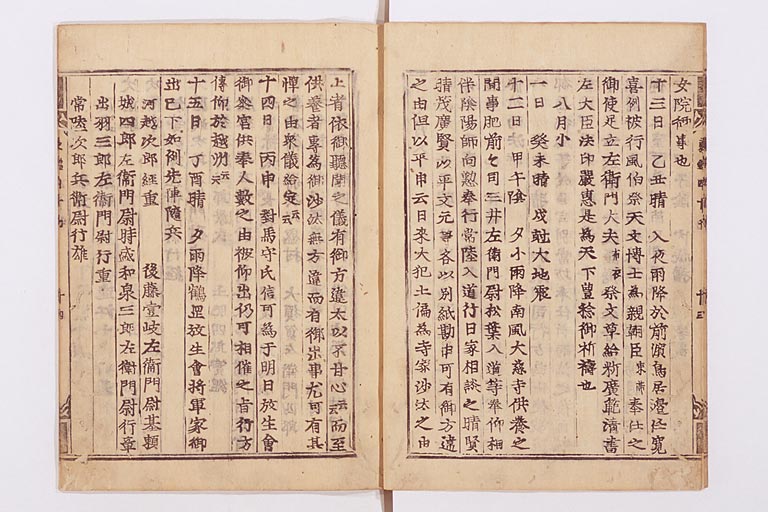 女院御事也
十三日 乙丑晴 入夜雨降於前濱鳥居邊任寛
喜例被行風伯祭天文博士為親朝臣束帯奉仕之
御使足立左衛門大夫布衣祭文草給新廣範清書
左大臣法印嚴恵是為天下豊稔御祈祷也
八月小
一日 癸未晴 戌剋大地震
十二日 甲午陰 夕小雨降南風大慈寺供養之
間事肥前々司三井左衛門尉松葉入道等奉仰相
伴陰陽師向懃奉行常陸入道行日家相談之晴賢
晴茂廣賢以平文元等各以別紙勘申可有御方違
之由但以平申云日来大犯土偏為寺家沙汰之由
上者依御聽聞之儀有御方違太以不甘心云云而至
供養者專為御沙汰無方違而有御出事尤可有其
憚之由衆儀給定云云
十四日 丙申 對馬守氏信可為于明日放生會
御祭官供奉人數之由被仰出仍可相催之旨行方
傳仰於越州云云
十五日 丁酉晴 夕雨降鶴岡放生會將軍家御
出已下如例先陣隨兵
河越次郎經重 後藤壹岐左衛門尉基頼
城四郎左衛門尉時盛和泉三郎左衛門尉行章
出羽三郎左衛門尉行重
常陸次郎兵衛尉行雄
十三
十四